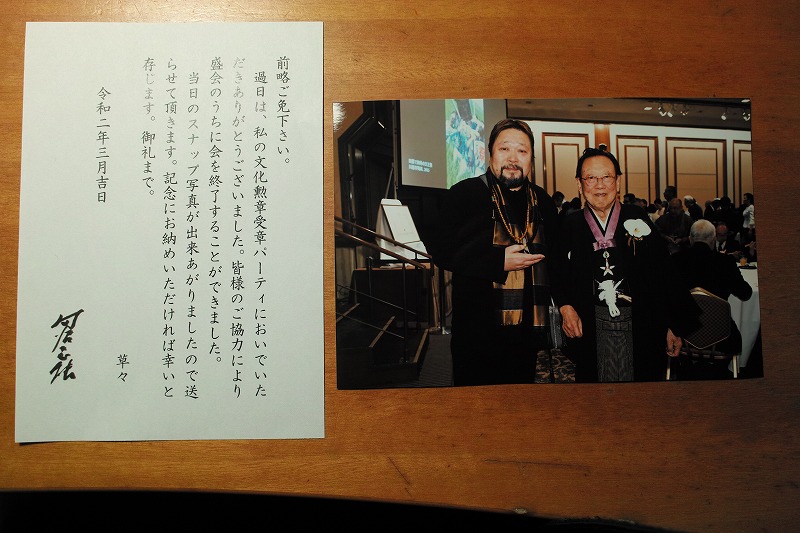 前略ご免下さい。
過日は、私の文化勲章受章パーティにおいでいた
だきありがとうございました。皆様のご協力により
盛会のうちに会を終了することができました。
当日のスナップ写真が出来あがりましたので送
らせて頂きます。記念にお納めいただければ幸いと
存じます。御礼まで。
令和二年三月吉日
草々